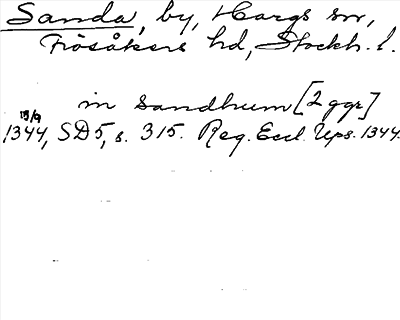 Sanda, by, Hargs sn,
Frösåkers hd, Stockh. l.
in Sandhum [2 ggr]
19/9
1344, SD 5, s. 315. Reg. Eccl. Ups. 1344.